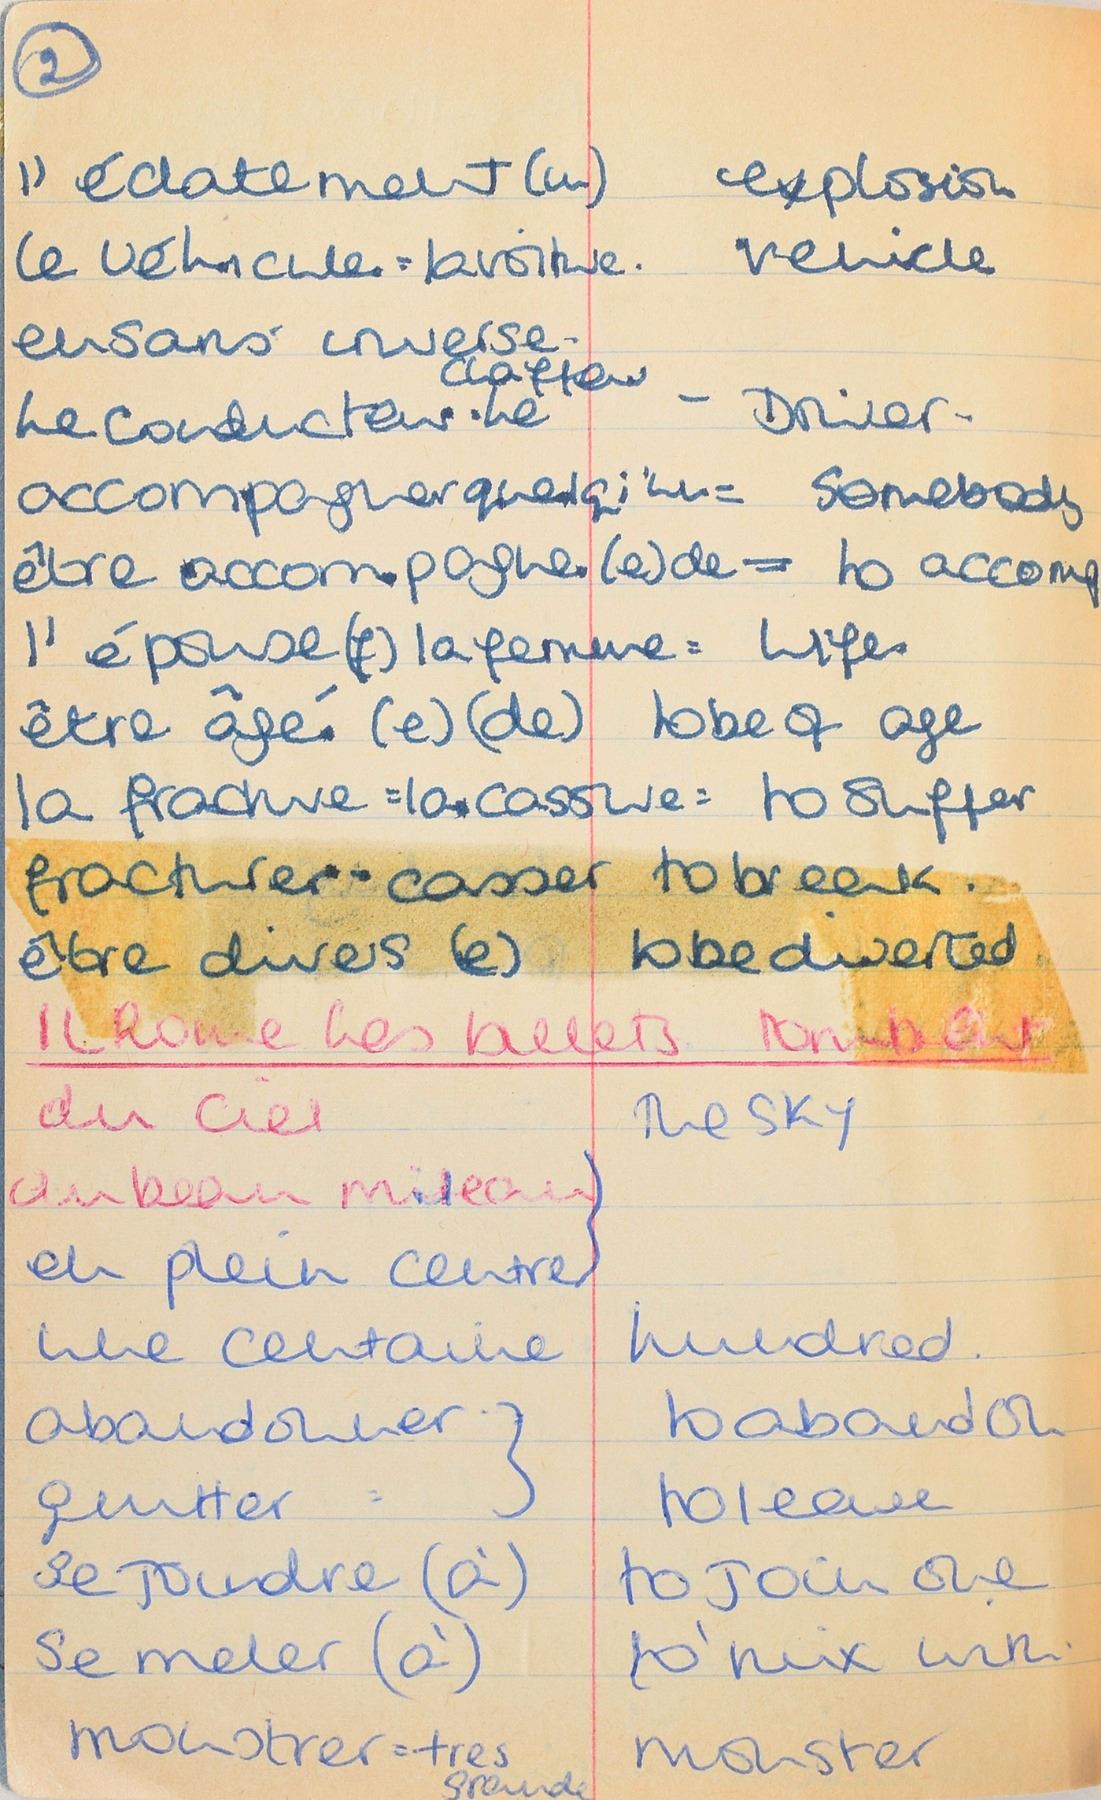 2
l' éclatement (m) explosion
le véhicule = la voiture. vehicle
en sans inverse.
Le conducteur. Le chaffeur - Driver.
accompagner quelqi'un = Somebody
être accompagne. (e) de = to accomp
l' épouse (f) la femme = Wife.
être âgé. (e) (de) to be of age
la fracture = la cassure = to suffer
fracturer - casser to breeak.
être divers (e) to be diverted
Rome Les billets tombent
du Ciel The SKY
au beau milieau
en plein centre
une centaine hundred.
abandonner. to abandon
quitter = to leave
Se Joundre (à) to Join one
Se meler (à) to mix with.
monstrer = tres monster
grande